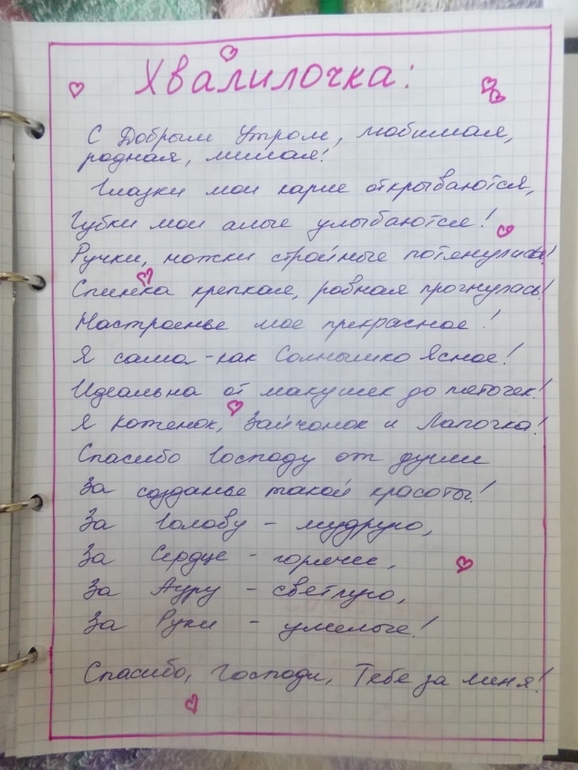 Хвалилочка:
С Добрым Утром, любимая,
родная, милая!
Глазки мои карие открываются,
Губки мои алые улыбаются!
Ручки, ножки стройные потянулись!
Спинка крепкая, ровная прогнулась!
Настроенье мое прекрасное!
Я сама - как Солнышко Ясное!
Идеальна от макушек до пяточек!
Я Котенок, Зайчонок и Лапочка!
Спасибо Господу от души
За созданье такой красоты!
За Голову - мудрую,
За Сердце - горячее,
За Ауру - светлую,
За Руки - умелые!
Спасибо, Господи, Тебе за меня!